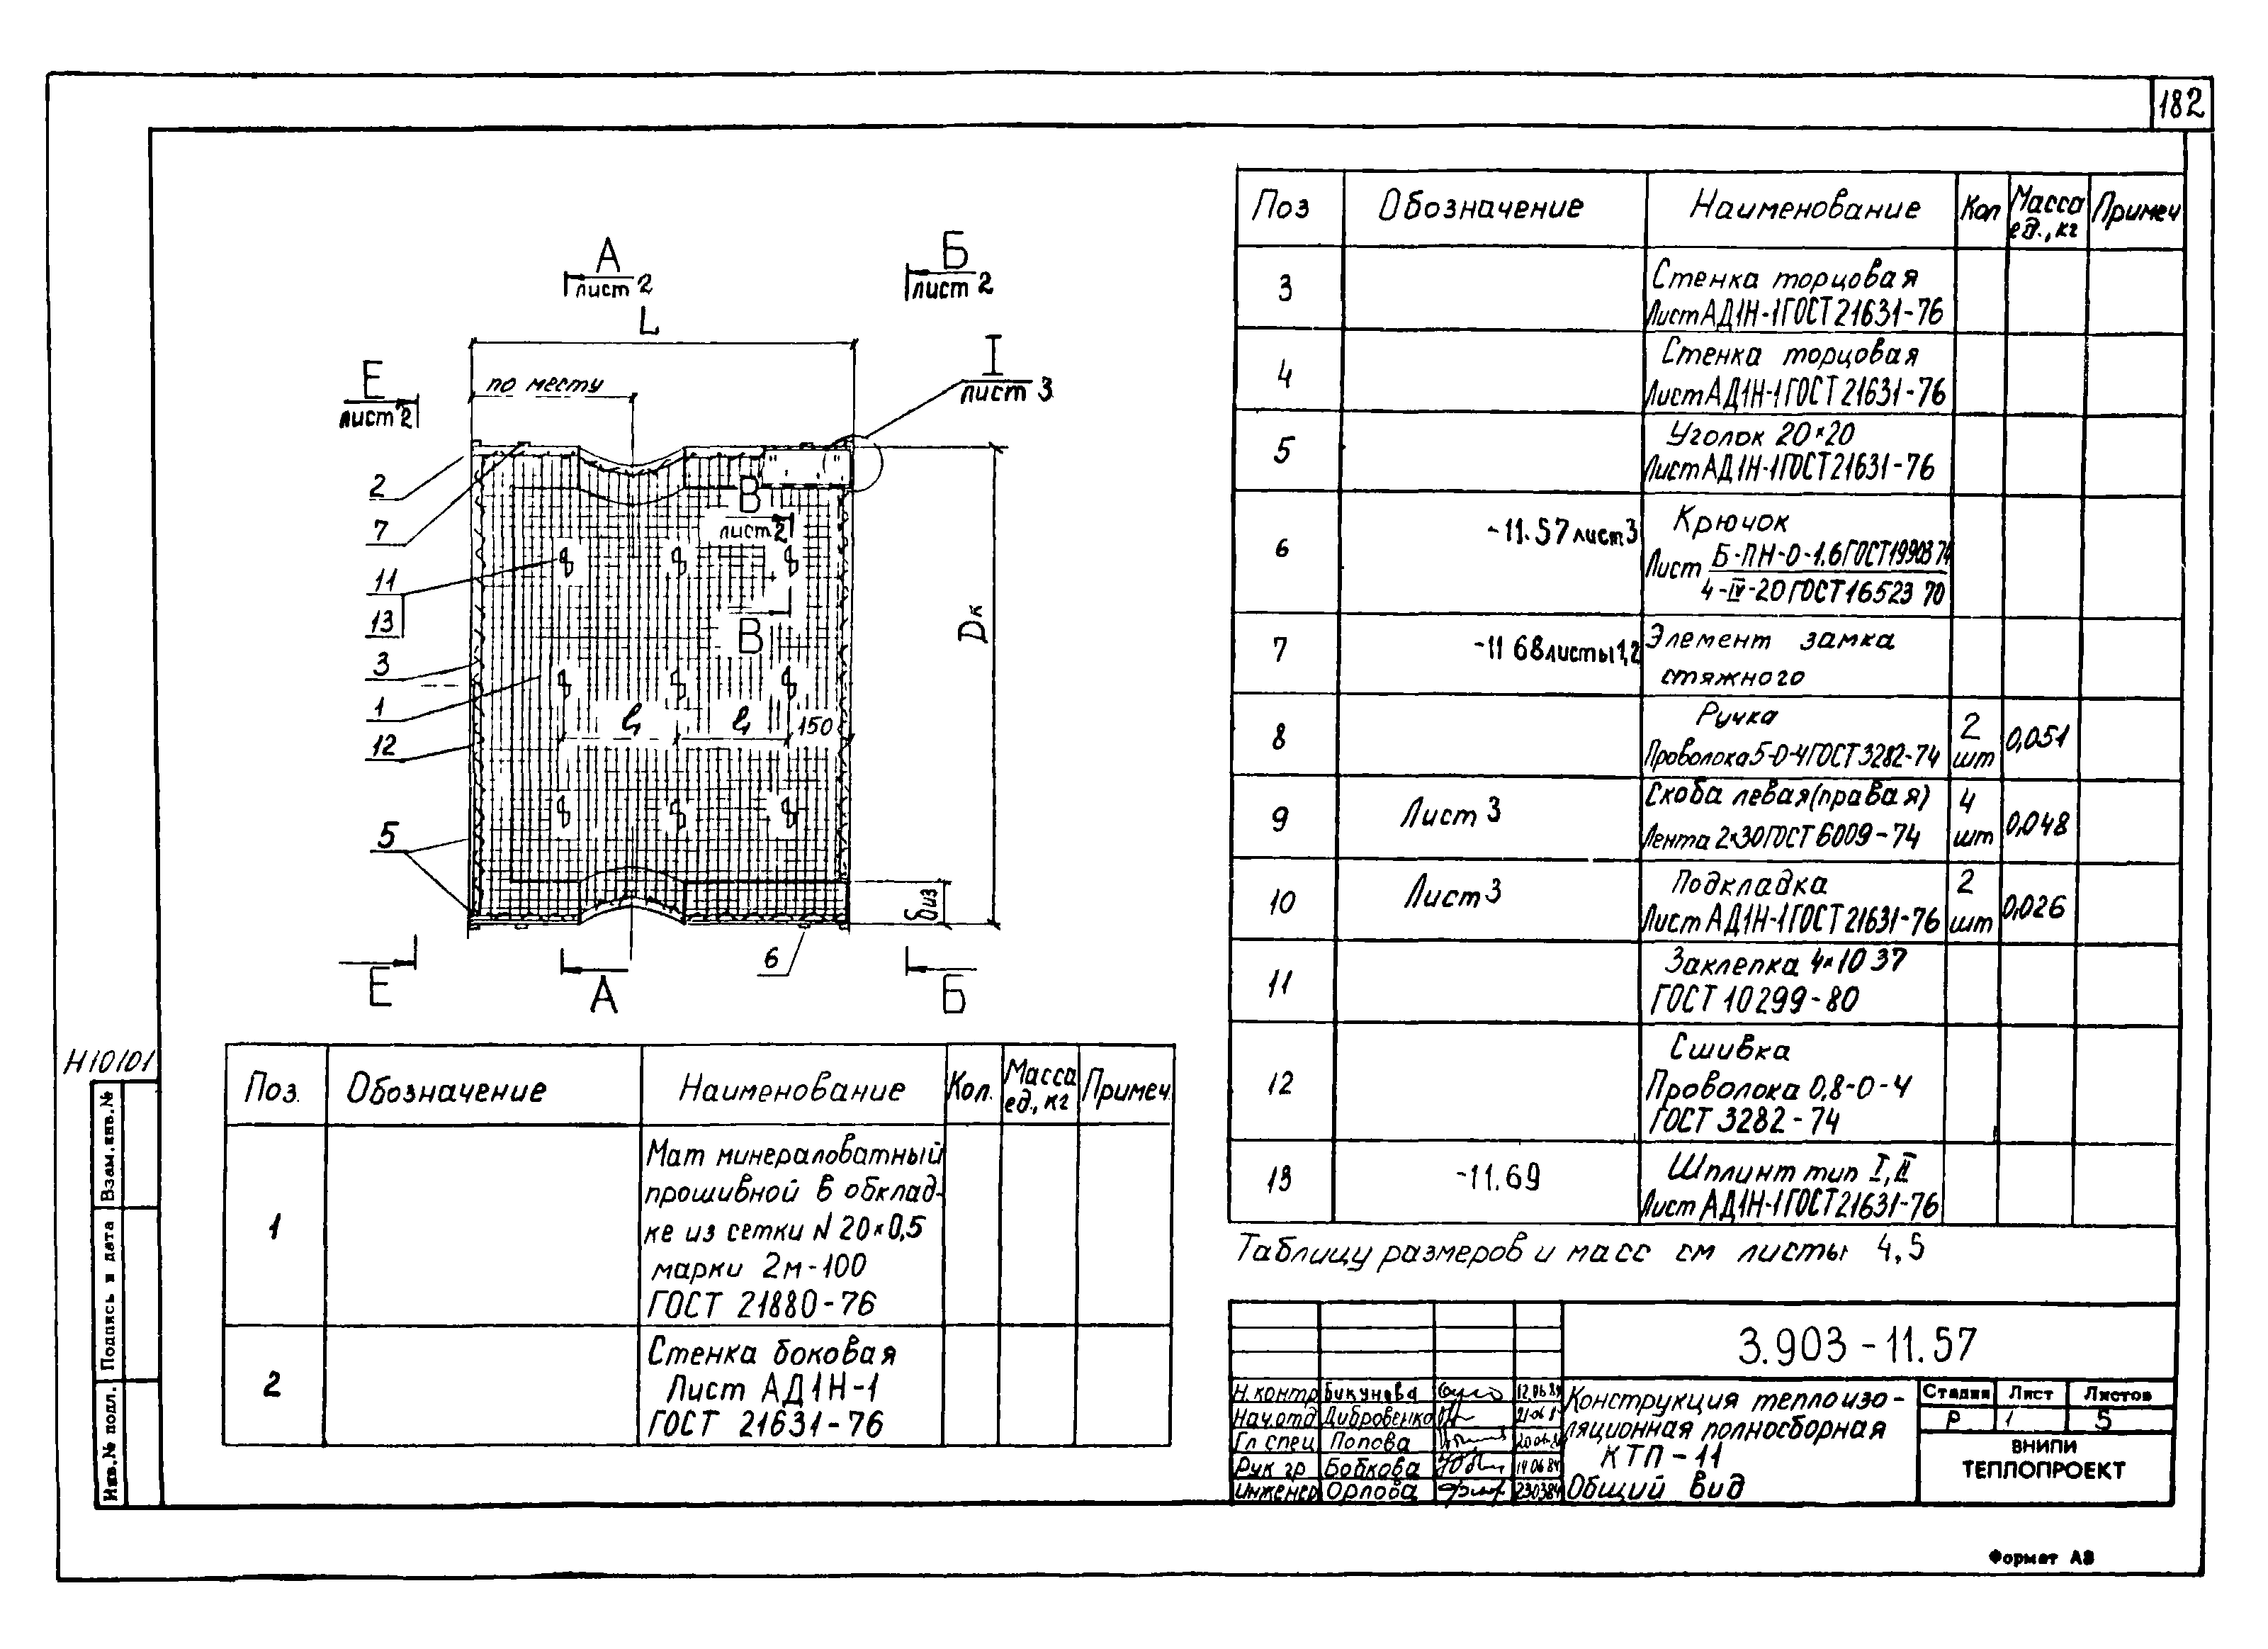 182
А
лист 2
Б
лист 2
L
I
лист 3
Е
лист 2
по месту
2
7
11
13
3
1
12
5
В
лист 2
В
ℓ₁
ℓ₁
150
Dк
δиз
6
Е
А
А
Б
Поз.
Обозначение
Наименование
Кол.
Масса
ед., кг
Примеч.
1
Мат минераловатный
прошивной в обклад-
ке из сетки N 20×0,5
марки 2м-100
ГОСТ 21880-76
2
Стенка боковая
Лист АД1Н-1
ГОСТ 21631-76
Поз
Обозначение
Наименование
Кол
Масса
ед., кг
Примеч
3
Стенка торцовая
Лист АД1Н-1 ГОСТ 21631-76
4
Стенка торцовая
Лист АД1Н-1 ГОСТ 21631-76
5
Уголок 20×20
Лист АД1Н-1 ГОСТ 21631-76
6
-11.57 лист 3
Крючок
Лист Б-ПН-О-1.6 ГОСТ 19903 74
4-IV-20 ГОСТ 16523 70
7
-11 68 листы 1,2
Элемент замка
стяжного
8
Ручка
Проволока 5-О-4 ГОСТ 3282-74
2
шт
0,051
9
Лист 3
Скоба левая (правая)
Лента 2×30 ГОСТ 6009-74
4
шт
0,048
10
Лист 3
Подкладка
Лист АД1Н-1 ГОСТ 21631-76
2
шт
0,026
11
Заклепка 4×10 37
ГОСТ 10299-80
12
Сшивка
Проволока 0,8-О-Ч
ГОСТ 3282-74
13
-11.69
Шплинт тип I, II
Лист АД1Н-1 ГОСТ 21631-76
Таблицу размеров и масс см листы 4,5
3.903-11.57
Н. контр Бикунева 12.06.84
Нач отд Дибровенко
Гл спец Попова
Рук гр Бобкова 14 06 84
Инженер Орлова 230384
Конструкция теплоизо-
ляционная полносборная
КТП-11
Общий вид
Стадия Лист Листов
Р 1 5
ВНИПИ
ТЕПЛОПРОЕКТ
Н10101
Взам. инв. №
Подпись и дата
Инв. № подл.
Формат А3